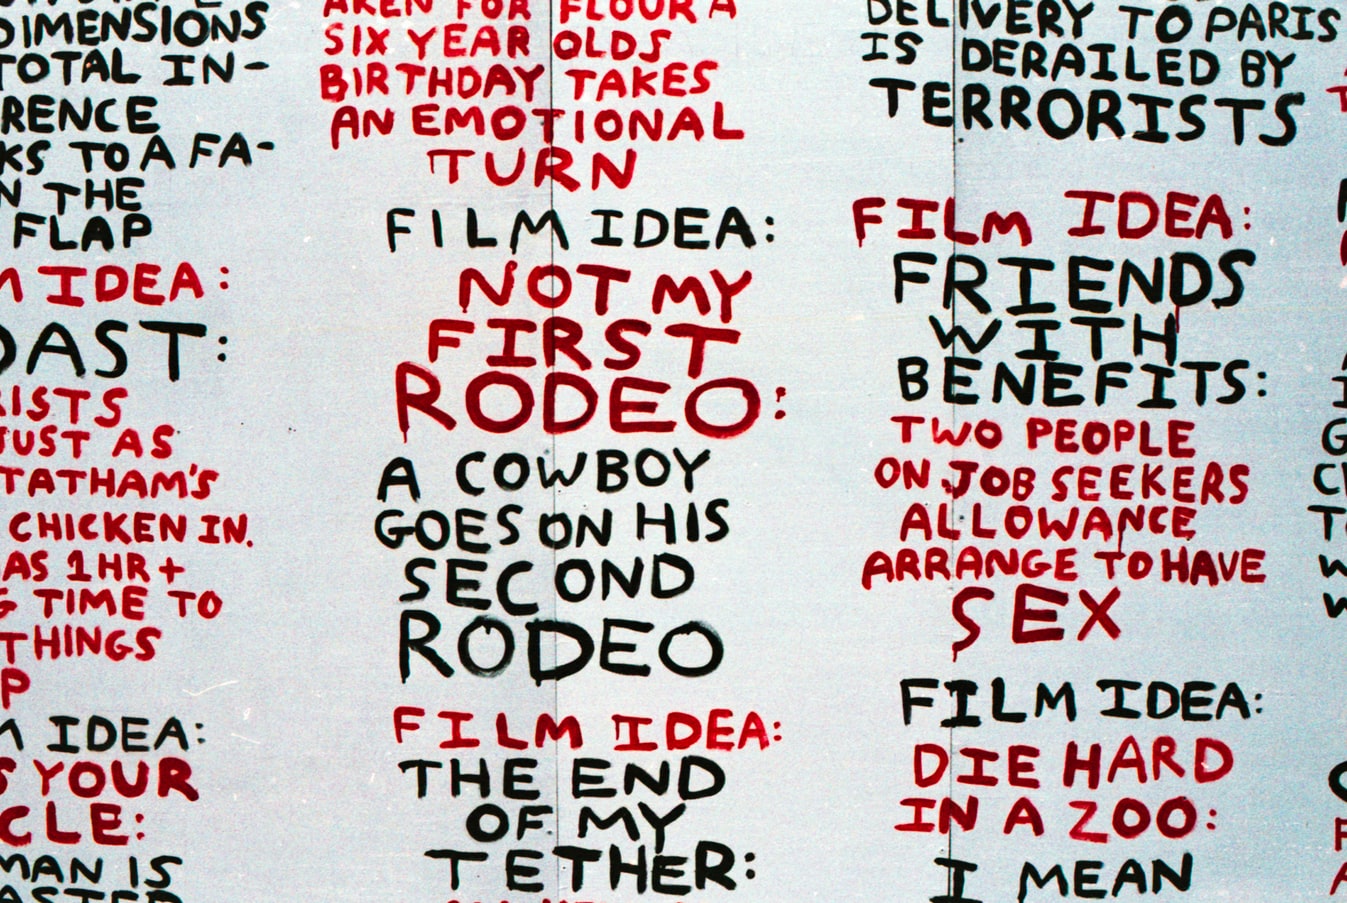 DIMENSIONS
TOTAL IN-
RENCE
KS TO A FA-
N THE
FLAP
M IDEA:
OAST:
RISTS
JUST AS
TATHAM'S
CHICKEN IN.
AS 1HR+
G TIME TO
THINGS
P
M IDEA:
S YOUR
CLE:
MAN IS
ASTER
AKEN FOR FLOUR A
SIX YEAR OLDS
BIRTHDAY TAKES
AN EMOTIONAL
TURN
FILM IDEA:
NOT MY
FIRST
RODEO:
A COWBOY
GOES ON HIS
SECOND
RODEO
FILM IDEA:
THE END
OF MY
TETHER:
DELIVERY TO PARIS
IS DERAILED BY
TERRORISTS
FILM IDEA:
FRIENDS
WITH
BENEFITS:
TWO PEOPLE
ON JOB SEEKERS
ALLOWANCE
ARRANGE TO HAVE
SEX
FILM IDEA:
DIE HARD
IN A ZOO:
I MEAN